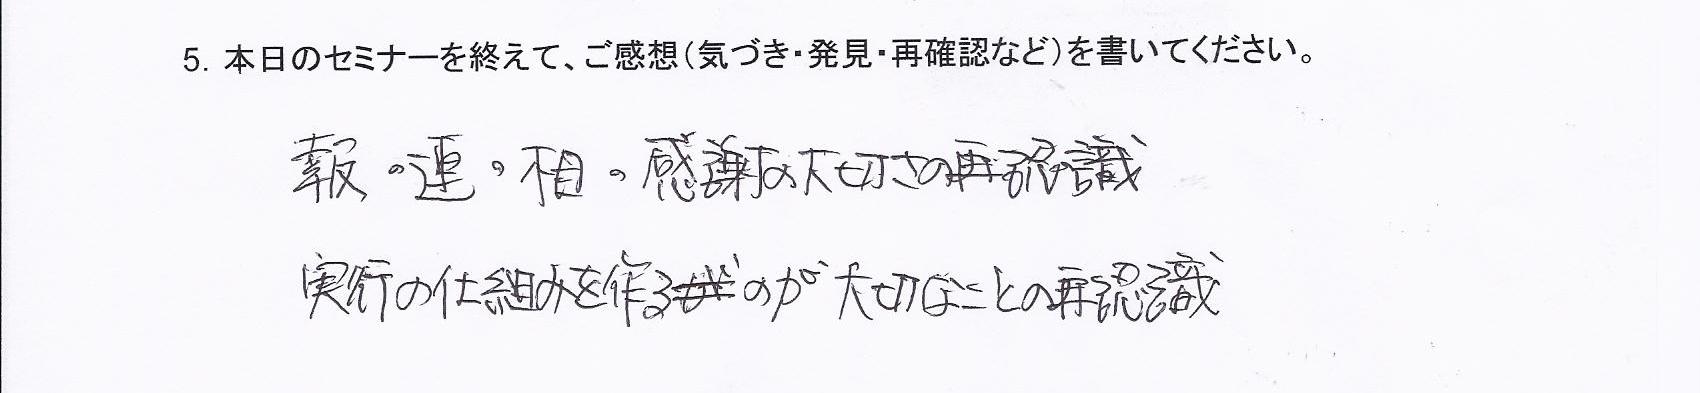 5. 本日のセミナーを終えて、ご感想（気づき・発見・再確認など）を書いてください。
報。連。相。感謝の大切さの再認識
実行の仕組みを作るのが大切なことの再認識